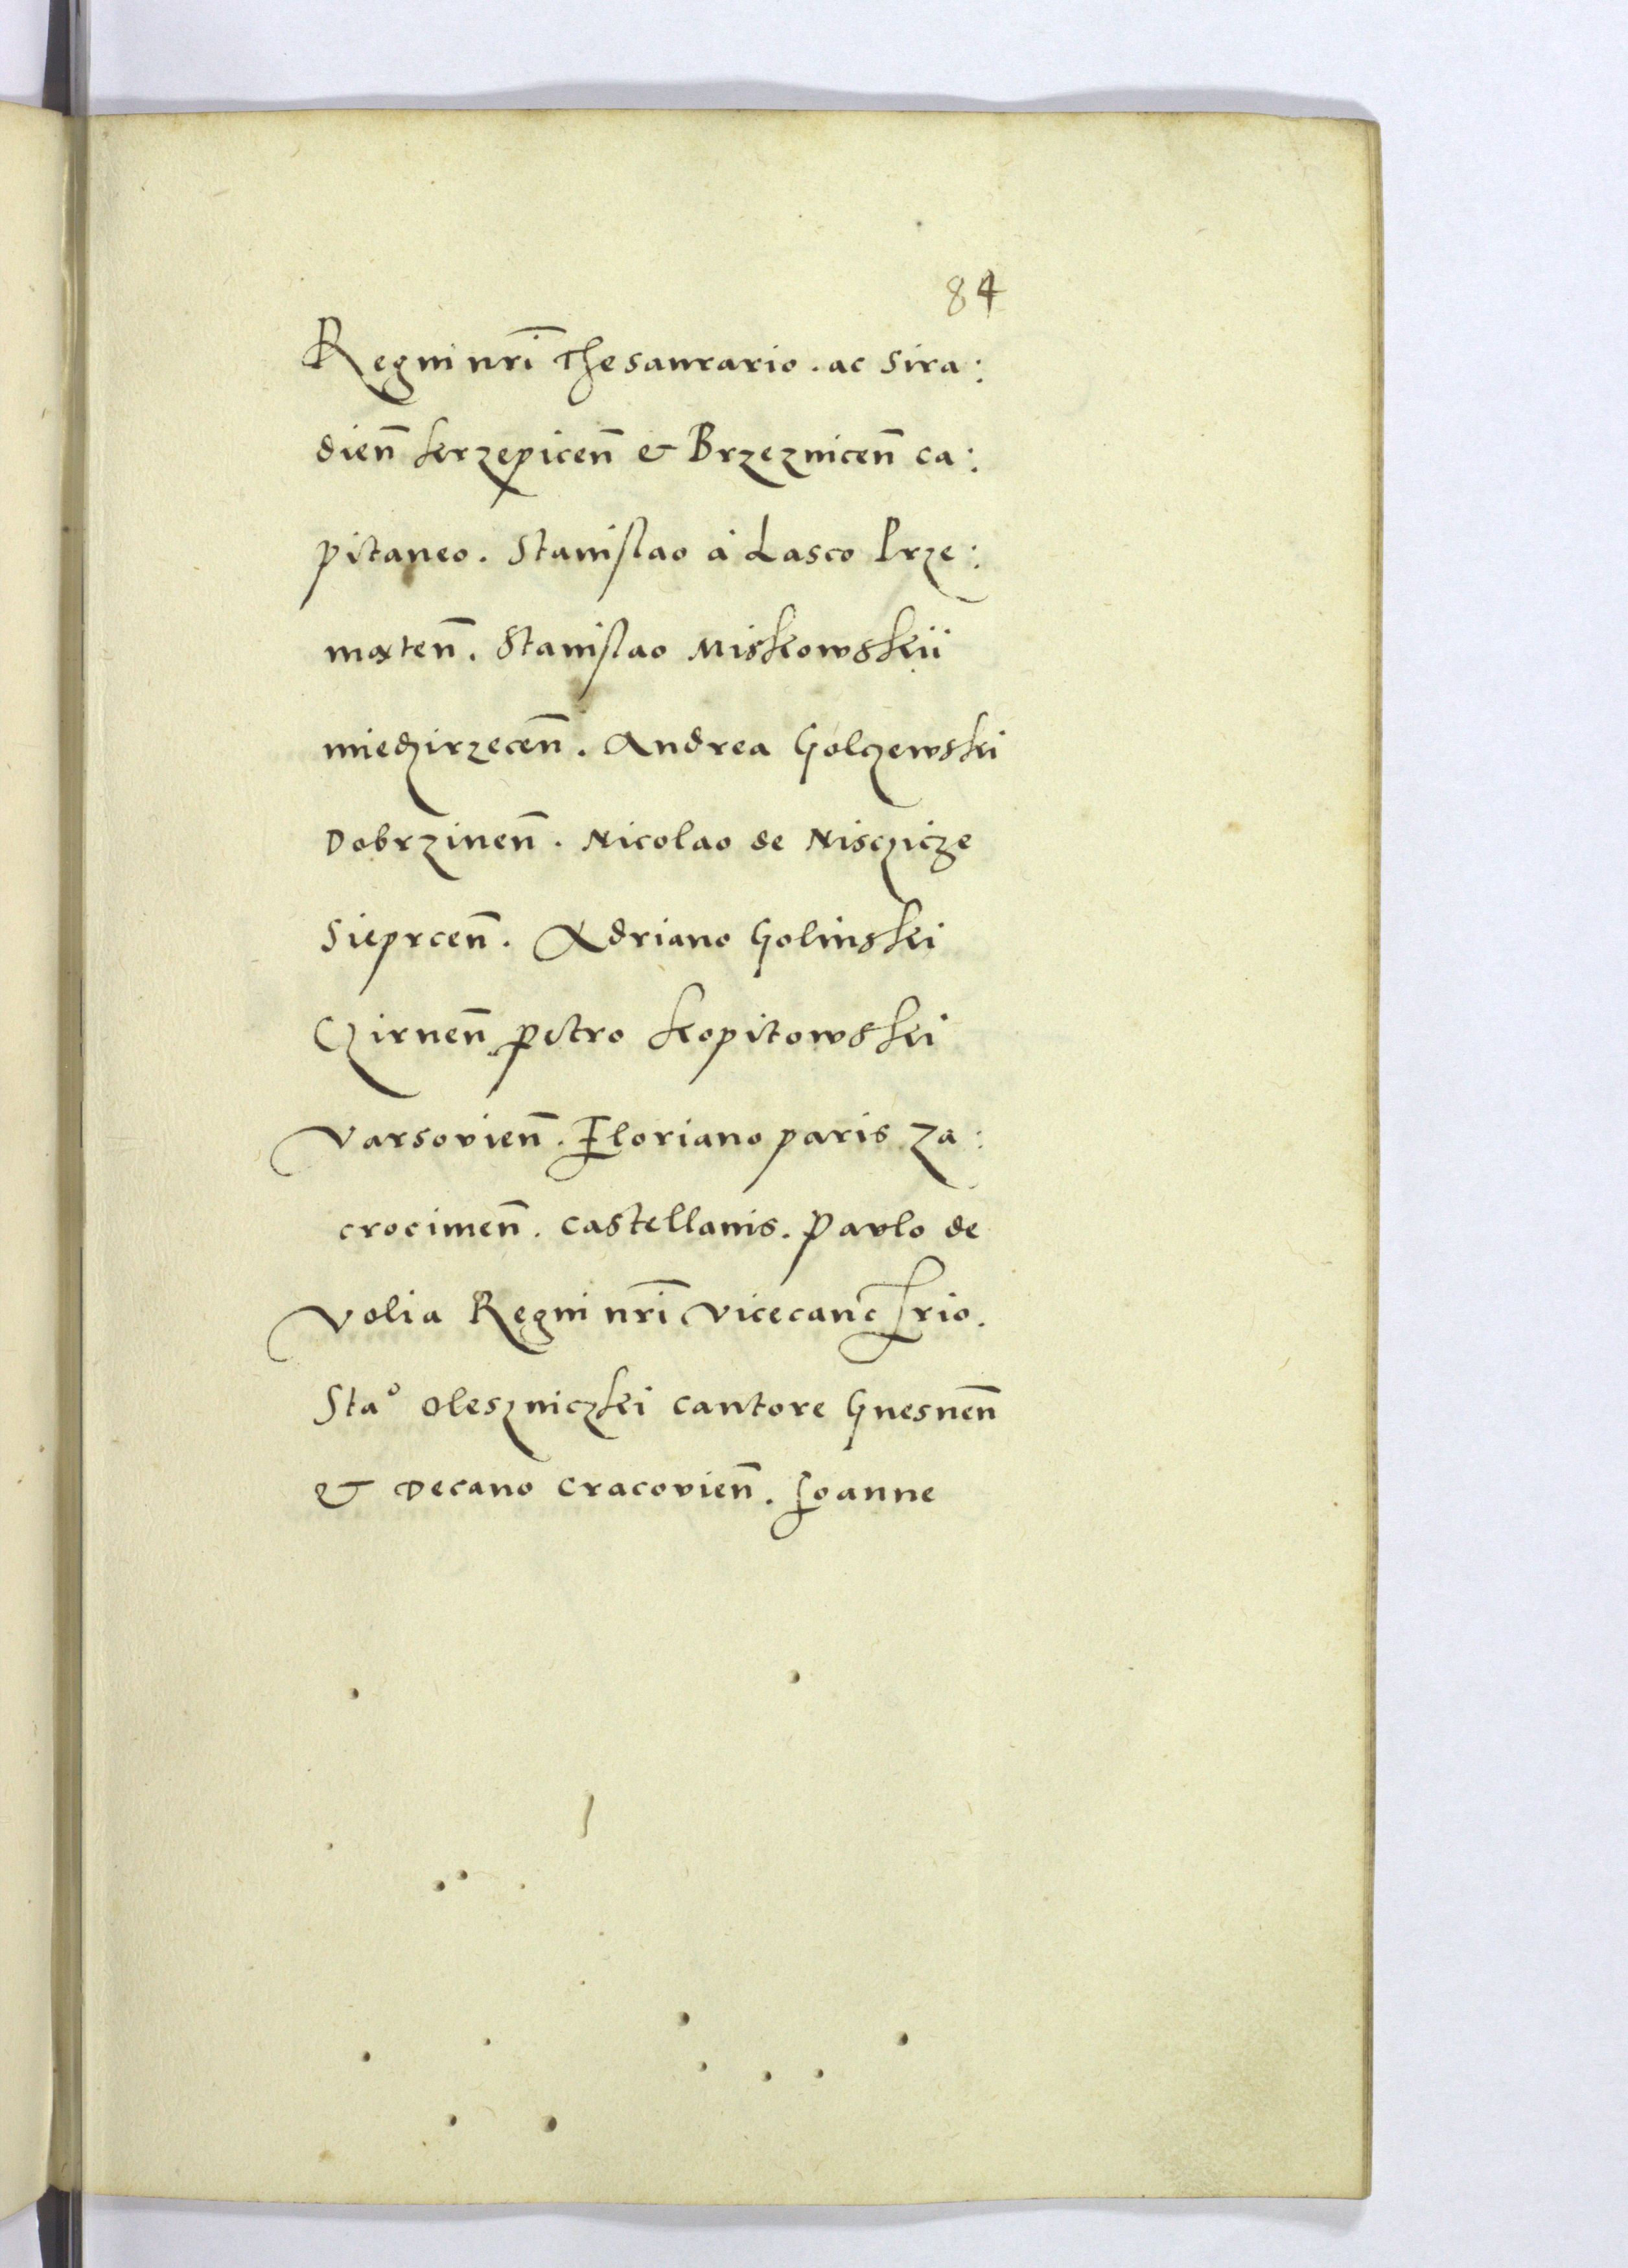 84
Regni nr̄i Thesaurario . ac Sira:
dien̄ krzepicen̄ & Brzeznicen̄ ca:
pitaneo . Stanislao à Lasco Prze:
mæten̄ . Stanislao Miskowskii
miedzirzecen̄ . Andrea Golczewski
Dobrzinen̄ . Nicolao de Nisczicze
Sieprcen̄ . Adriano Golinski
Czirnen̄ petro kopitowski
Varsovien̄ . Floriano paris Za:
crocimen̄ . castellanis . Pavlo de
Volia Regni nr̄i vicecanc̄ łrio .
Sta° Oleszniczki cantore Gnesnen̄
& Decano Cracovien̄ . Joanne